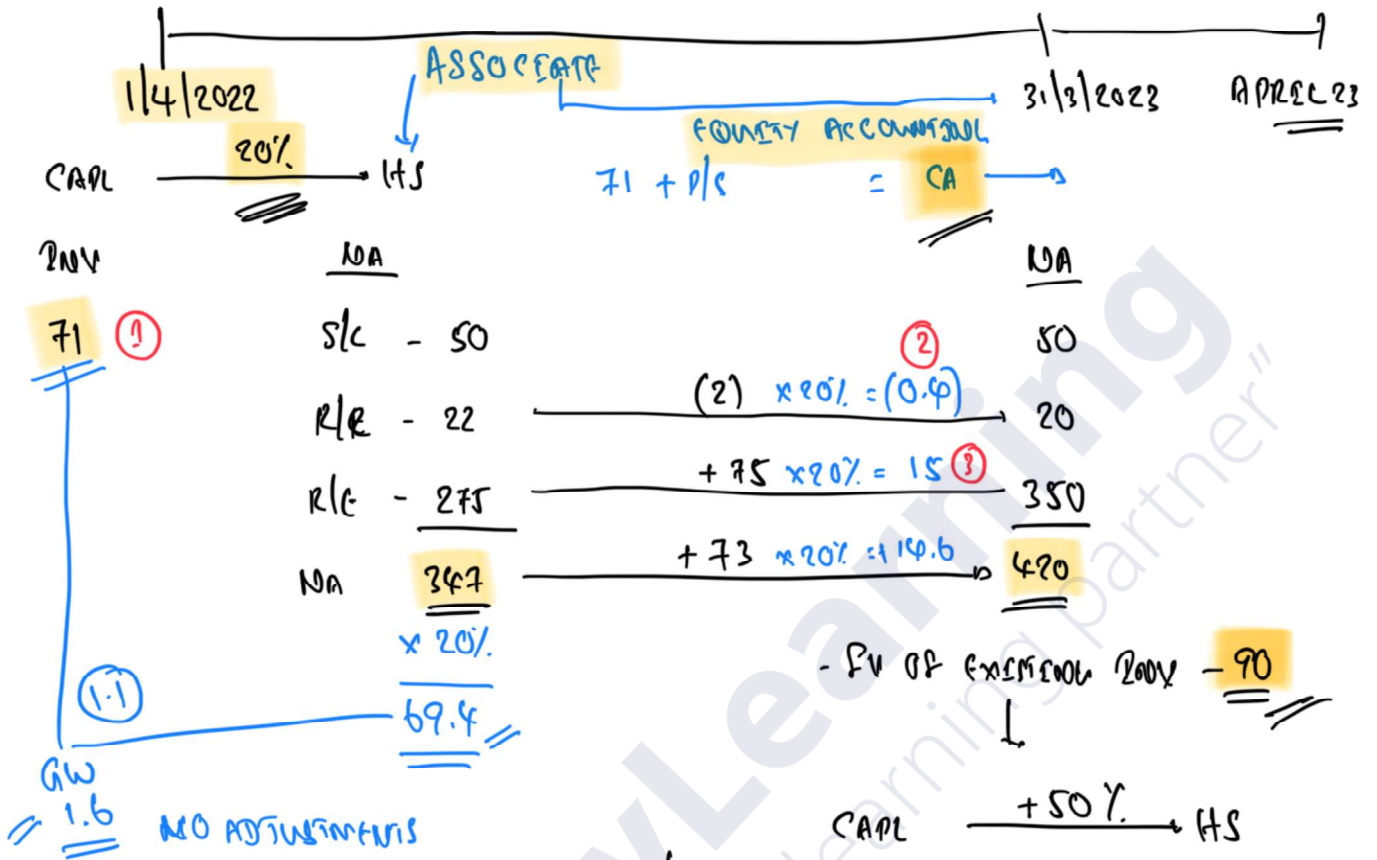 ASSOCIATE
1/4/2022 31/3/2023 APRIL 23
EQUITY ACCOUNTING
20%
CAPL HS 71 + P/S = CA
INV NA NA
71 ① S/C - 50 50
R/R - 22 (2) x 20% = (0.4) ② 20
R/E - 275 + 75 x 20% = 15 ③ 350
NA 347 + 73 x 20% = + 14.6 420
x 20%
- FV OF EXISTING INV - 90
1.1 69.4
GW
1.6 NO ADJUSTMENTS
CAPL +50% HS
vLearning
learning partner"